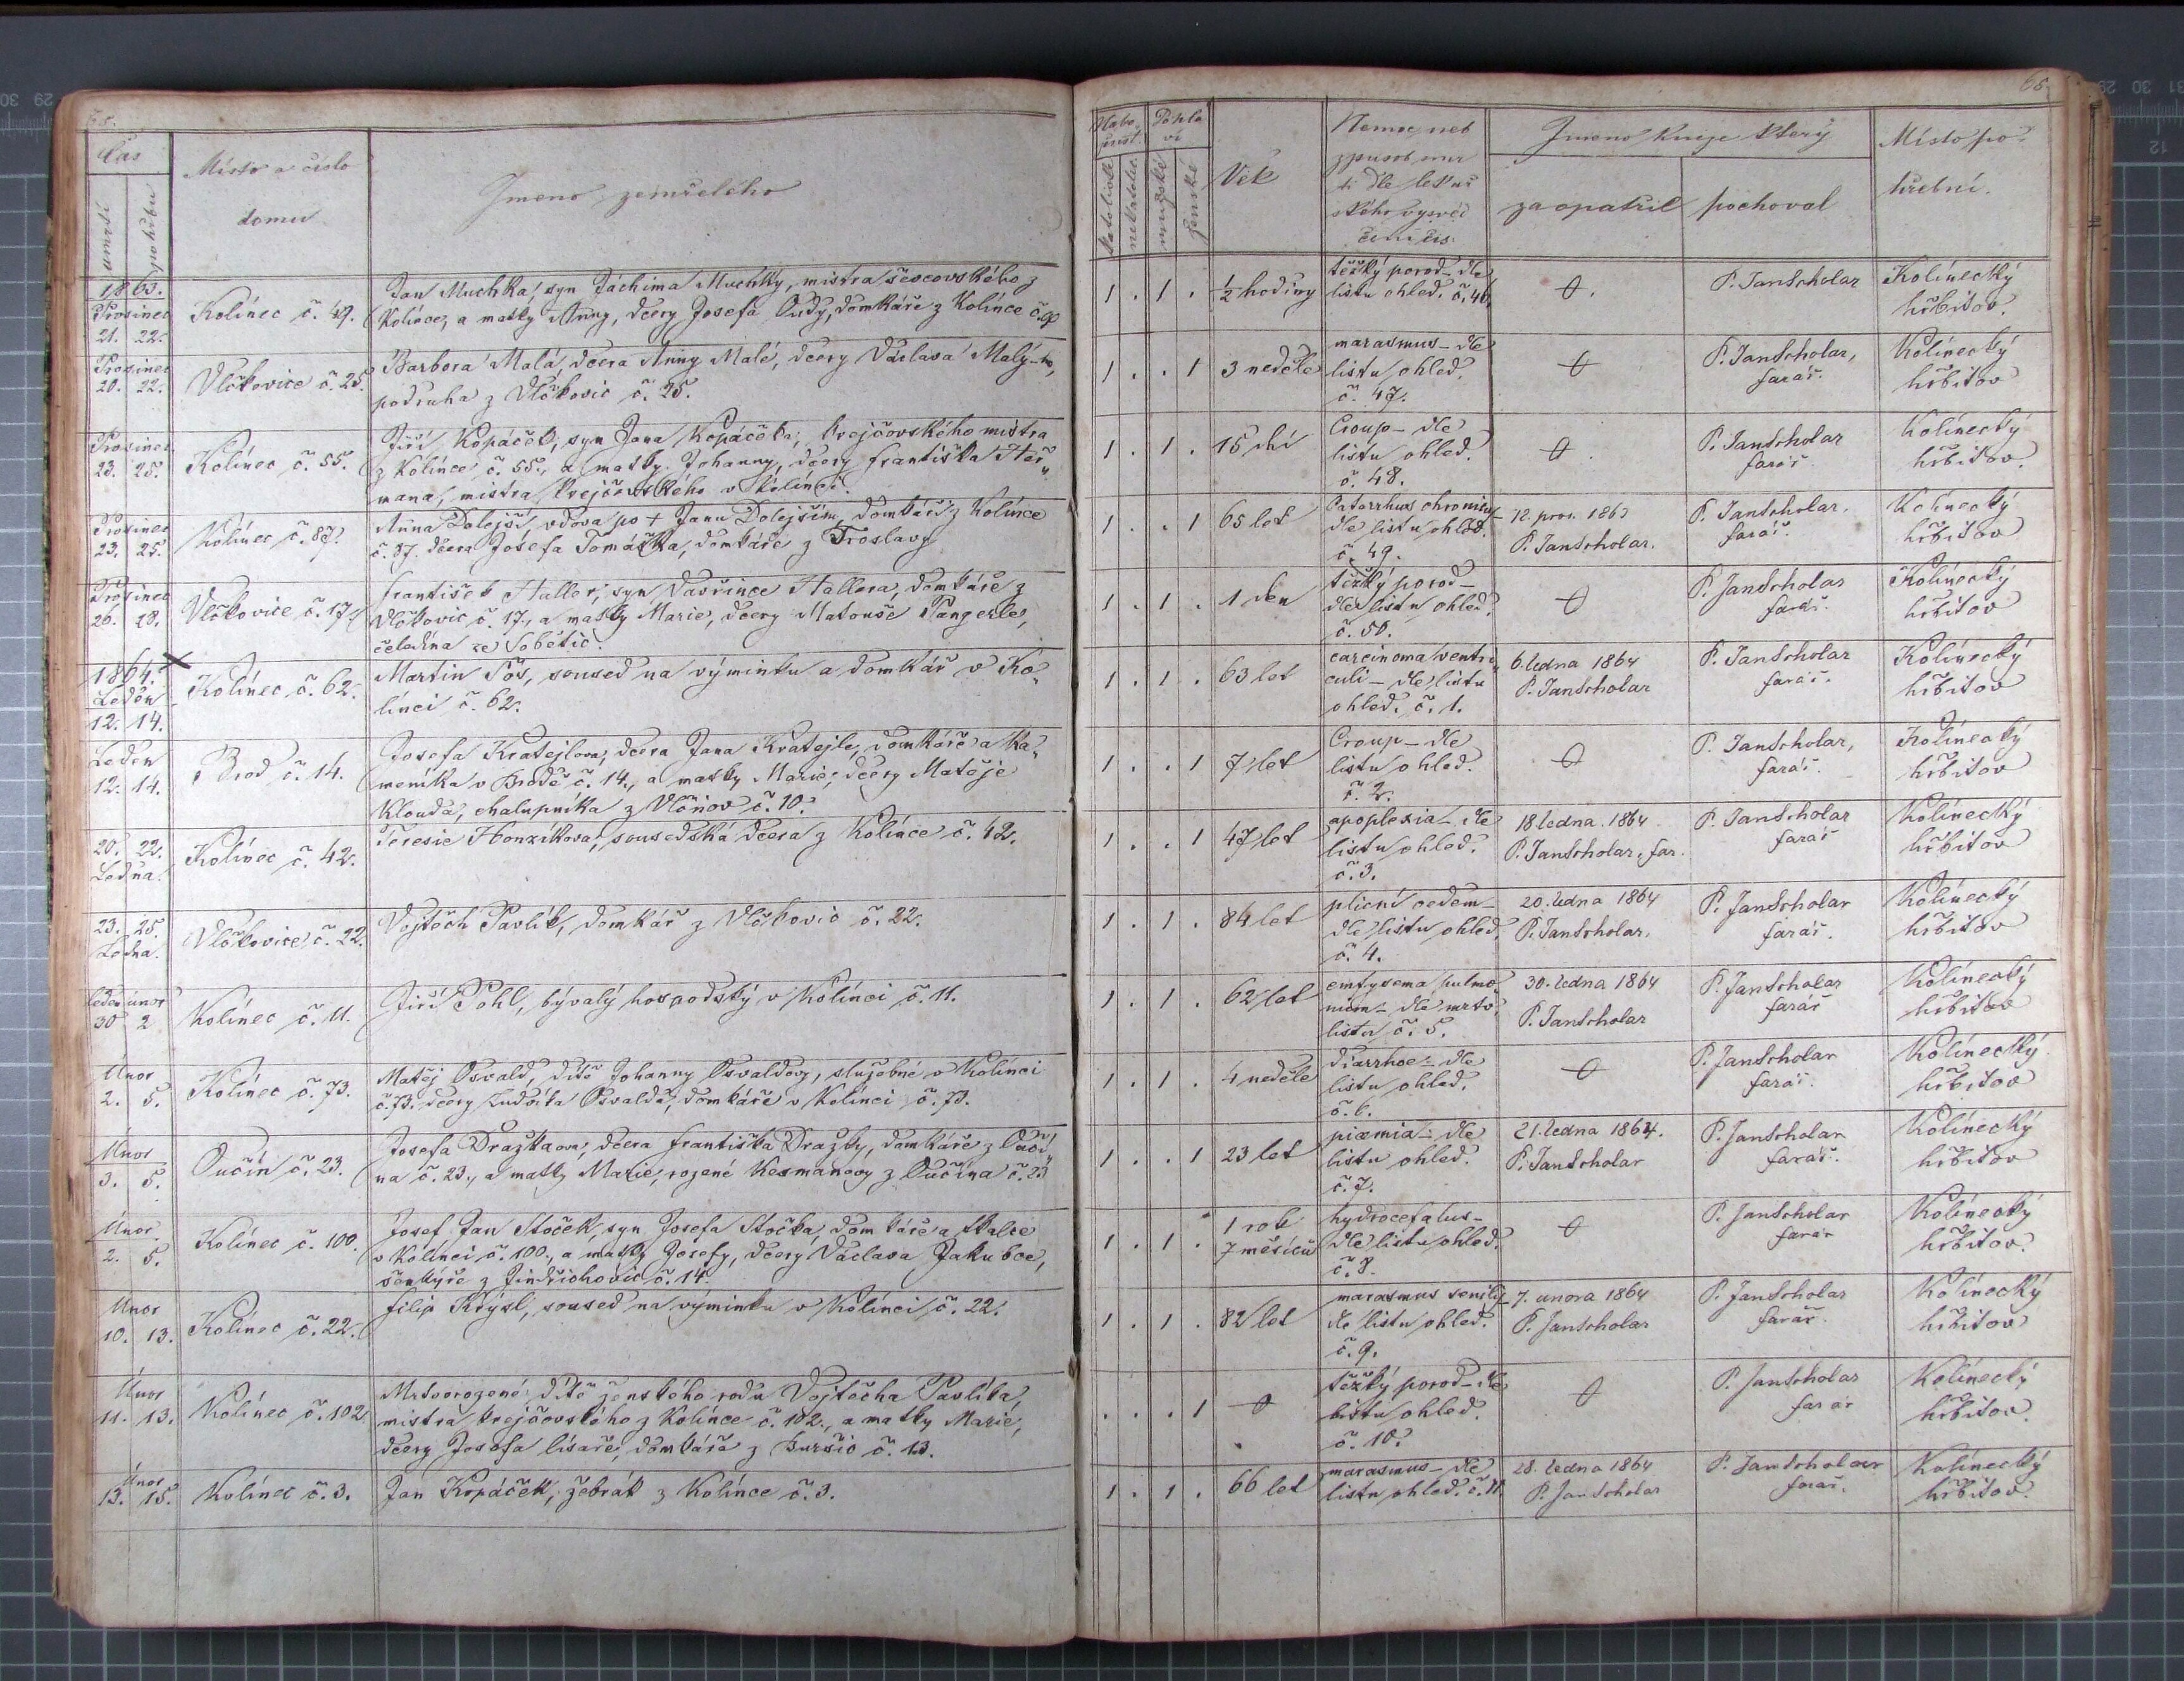 65.
Čas
úmrtí
pohřbu
Místo a číslo
domu
Jmeno zemřelého
1863.
Prosinec
21. 22.
Kolínec č. 49.
Jan Muchka, syn Jáchima Muchky, mistra ševcovského z
Kolínce, a matky Anny, dcery Josefa Dudy, domkáře z Kolínce
Prosinec
20. 22.
Vlčkovice č. 25.
Barbora Malá, dcera Anny Malé, dcery Václava Malý-ho,
podruha z Vlčkovic č. 25.
Prosinec
23. 25.
Kolínec č. 55.
Jiří Kopáček, syn Jana Kopáčka, krejčovského mistra
z Kolínce č. 55., a matky Johanny, dcery Františka Heř„
mana, mistra krejčovského v Kolínci.
Prosinec
23. 25.
Kolínec č. 87.
Anna Dolejší, vdova po † Janu Dolejším, domkáři z Kolínce
č. 87. dcera Josefa Tomáška, domkáře z Froslavy
Prosinec
26. 28.
Vlčkovice č. 17.
František Haller, syn Vavřince Hallera, domkáře z
Vlčkovic č. 17., a matky Marie, dcery Matouše Pangerle,
čeledína ze Sobětic.
1864.
Leden
12. 14.
Kolínec č. 62.
Martin Tös, soused na výminku a domkář v Ko„
línci č. 62.
Leden
12. 14.
Brod č. 14.
Josefa Kratejlova, dcera Jana Kratejle, domkáře a ka„
meníka v Brodě č. 14., a matky Marie, dcery Matěje
Klouda, chalupníka z Vlčňov č. 10.
20. 22.
Ledna.
Kolínec č. 42.
Teresie Honzíkova, sousedská dcera z Kolínce č. 42.
23. 25.
Ledna.
Vlčkovice č. 22.
Vojtěch Pavlík, domkář z Vlčkovic č. 22.
leden únor
30 2
Kolínec č. 11.
Jiří Pohl, bývalý hospodský v Kolínci č. 11.
Únor
2. 5.
Kolínec č. 73.
Matěj Osvald, dítě Johanny Osvaldovy, služebné v Kolínci
č. 73. dcery Ludvíka Osvalda, domkáře v Kolínci č. 73.
Únor
3. 5.
Pučín č. 23.
Josefa Dražkova, dcera Františka Dražky, domkáře z Pučí„
na č. 23., a matky Marie, rozené Kesmanovy z Pučína č. 23
Únor
2. 5.
Kolínec č. 100.
Josef Jan Stoček, syn Josefa Stočka, domkáře a tkalce
v Kolínci č. 100., a matky Josefy, dcery Václava Jakubce,
šenkýře z Jindřichovic č. 14.
Únor
10. 13.
Kolínec č. 22.
Filip Krýsl, soused na výminku v Kolínci č. 22.
Únor
11. 13.
Kolínec č. 102
Mrtvorozené dítě ženského rodu Vojtěcha Pavlíka,
mistra krejčovského z Kolínce č. 102., a matky Marie,
dcery Josefa lisaře, domkáře z Buršic č. 13.
Únor
13. 15.
Kolínec č. 3.
Jan Kopáček, žebrák z Kolínce č. 3.
65.
Nábo„
ženst.
Pohla
ví
katolické
nekatolické
mužské
ženské
Věk
Nemoc neb
způsob smr
ti dle lékař
ského vysvěd
čení čís.
Jmeno kněze který
zaopatřil
pochoval
Místo po„
hřební.
1 . 1 .
1/2 hodiny
těžký porod – dle
listu ohled. č. 46.
0.
P. Jan Scholar
Kolínecký
hřbitov.
1 . . 1
3 neděle
marasmus – dle
listu ohled.
č. 47.
0
P. Jan Scholar,
farář.
Kolínecký
hřbitov
1 . 1 .
15 dní
Croup – dle
listu ohled.
č. 48.
0.
P. Jan Scholar
farář
Kolínecký
hřbitov.
1 . . 1
65 let
Catarrhus chronicus
dle listu ohled.
č. 49.
12. pros. 1863
P. Jan Scholar.
P. Jan Scholar.
farář.
Kolínecký
hřbitov
1 . 1 .
1 den
těžký porod –
dle listu ohled.
č. 50.
0
P. Jan Scholar
farář.
Kolínecký
hřbitov
1 . 1 .
63 let
carcinoma ventri„
culi – dle listu
ohled. č. 1.
6. ledna 1864
P. Jan Scholar
P. Jan Scholar
farář.
Kolínecký
hřbitov
1 . . 1
7 let
Croup – dle
listu ohled.
č. 2.
0
P. Jan Scholar,
farář.
Kolínecký
hřbitov
1 . . 1
47 let
apoplexia – dle
listu ohled.
č. 3.
18 ledna. 1864
P. Jan Scholar, far.
P. Jan Scholar
farář
Kolínecký
hřbitov
1 . 1 .
84 let
plicní oedem –
dle listu ohled.
č. 4.
20. ledna 1864
P. Jan Scholar.
P. Jan Scholar
farář.
Kolínecký
hřbitov
1 . 1 .
62 let
emfysema pulmo„
num – dle mrtv.
listu č. 5.
30. ledna 1864
P. Jan Scholar
P. Jan Scholar
farář
Kolínecký
hřbitov
1 . 1 .
4 neděle
diarrhoe – dle
listu ohled.
č. 6.
0
P. Jan Scholar
farář.
Kolínecký
hřbitov
1 . . 1
23 let
piæmia – dle
listu ohled.
č. 7.
21. ledna 1864.
P. Jan Scholar
P. Jan Scholar
farář.
Kolínecký
hřbitov
1 . 1 .
1 rok
7 měsíců
hydrocefalus –
dle listu ohled.
č. 8.
0
P. Jan Scholar
farář
Kolínecký
hřbitov.
1 . 1 .
82 let
marasmus senilis
dle listu ohled.
č. 9.
7. unora 1864
P. Jan Scholar
P. Jan Scholar
farář.
Kolínecký
hřbitov
. . . 1
0
těžký porod – dle
listu ohled.
č. 10.
0
P. Jan Scholar
farář
Kolínecký
hřbitov.
1 . 1 .
66 let
marasmus – dle
listu ohled. č. 11.
28. ledna 1864
P. Jan Scholar
P. Jan Scholar
farář.
Kolínecký
hřbitov.